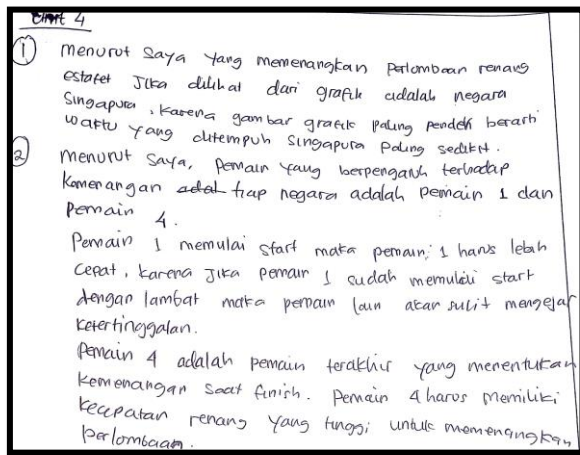 Unit 4
① menurut saya yang memenangkan perlombaan renang
estafet Jika dilihat dari grafik adalah negara
Singapura, karena gambar grafik paling pendek berarti
waktu yang ditempuh Singapura paling sedikit.
② menurut saya, pemain yang berpengaruh terhadap
kemenangan adal tiap negara adalah pemain 1 dan
pemain 4.
Pemain 1 memulai start maka pemain 1 harus lebih
cepat, karena jika pemain 1 sudah memulai start
dengan lambat maka pemain lain akan sulit mengejar
ketertinggalan.
Pemain 4 adalah pemain terakhir yang menentukan
kemenangan saat finish. Pemain 4 harus memiliki
kecepatan renang yang tinggi untuk memenangkan
perlombaan.